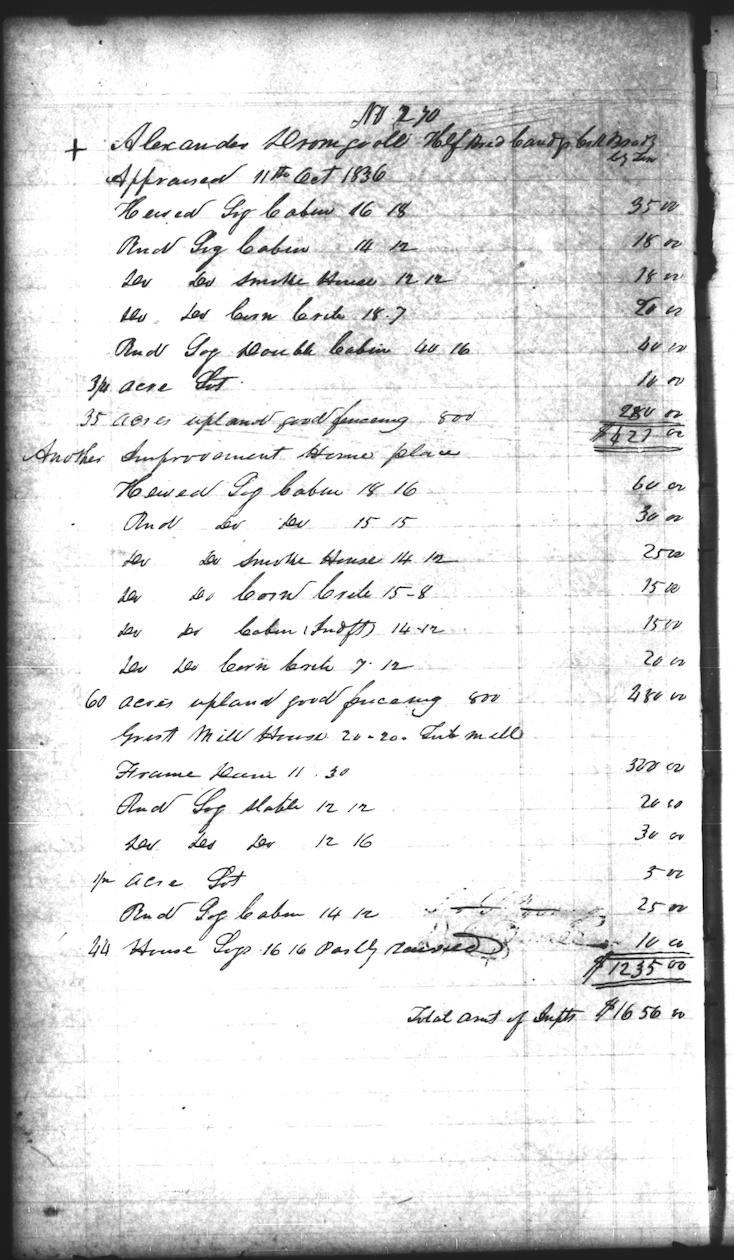 No 270
+ Alexander Dromgoole Half Bred Candys Crk Brad[?]
by Ten
Appraised 11th Oct 1836
Hewed Log Cabin 16 18 35 00
Rnd Log Cabin 14 12 18 00
Do Do Smoke House 12 12 18 00
Do Do Corn Crib 18.7 20 00
Rnd Log Double Cabin 40 16 40 00
3/4 acre Lot 10 00
35 acres upland good fenceing 800 280 00
Another Improvement Home place $421 00
Hewed Log Cabin 18 16 60 00
Rnd Do Do 15 15 30 00
Do Do Smoke House 14 12 25 00
Do Do Corn Crib 15-8 15 00
Do Do Cabin 14-12 15 00
Do Do Corn Crib 7.12 20 00
60 acres upland good fenceing 800 480 00
Grist Mill House 20-20- Tub mill
Frame Dam 11.30 300 00
Rnd Log Stable 12 12 20 00
Do Do Do 12 16 30 00
1/2 acre Lot 5 00
Rnd Log Cabin 14 12 25 00
44 House Logs 16 16 Partly raised 10 00
$1235 00
Total amt of Impts $1656 00